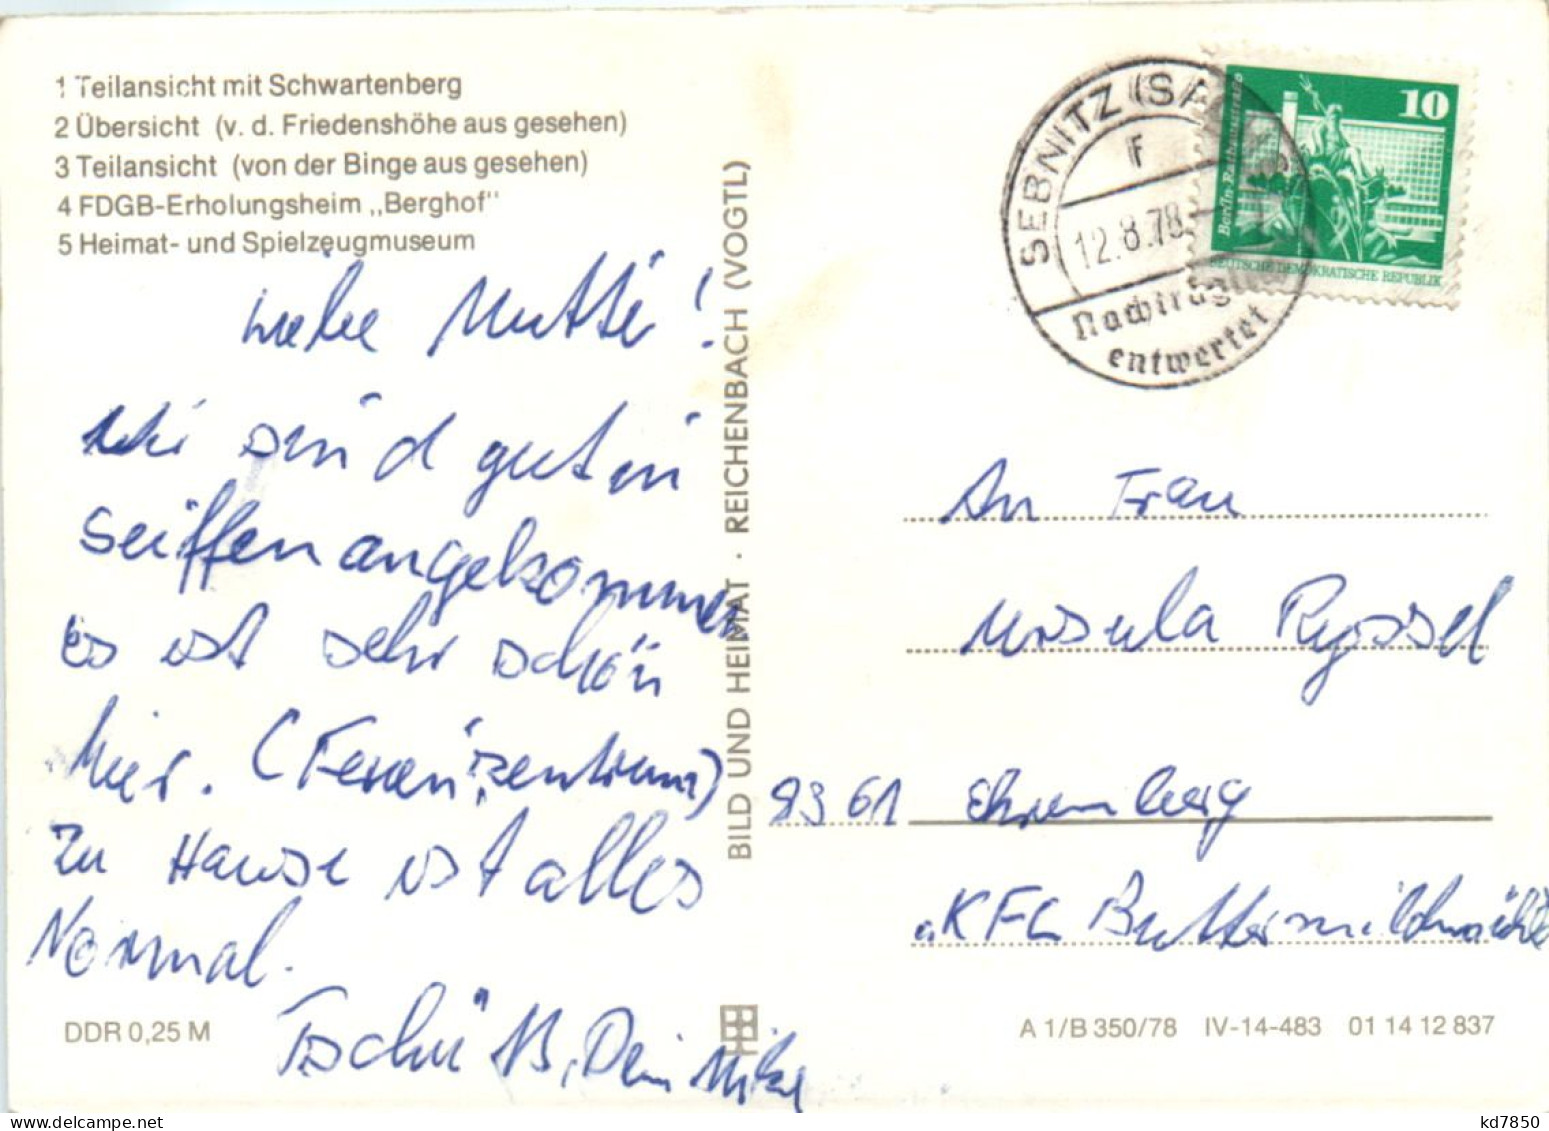 1 Teilansicht mit Schwartenberg
2 Übersicht (v. d. Friedenshöhe aus gesehen)
3 Teilansicht (von der Binge aus gesehen)
4 FDGB-Erholungsheim „Berghof"
5 Heimat- und Spielzeugmuseum
Liebe Mutti!
Wir sind gut in
Seiffen angekommen
Es ist sehr schön
hier. (Ferienzentrum)
Zu Hause ist alles
Normal.
Tschüß, Dein
DDR 0,25 M
BILD UND HEIMAT · REICHENBACH (VOGTL)
SEBNITZ (SA
F
12.8.78
Nachträgli
entwertet
10
Berlin-Rathausstraße
DEUTSCHE DEMOKRATISCHE REPUBLIK
An Frau
Ursula Ryssel
9361 Ehrenberg
KFL Buttermilchmühle
A 1/B 350/78 IV-14-483 01 14 12 837
kd7850